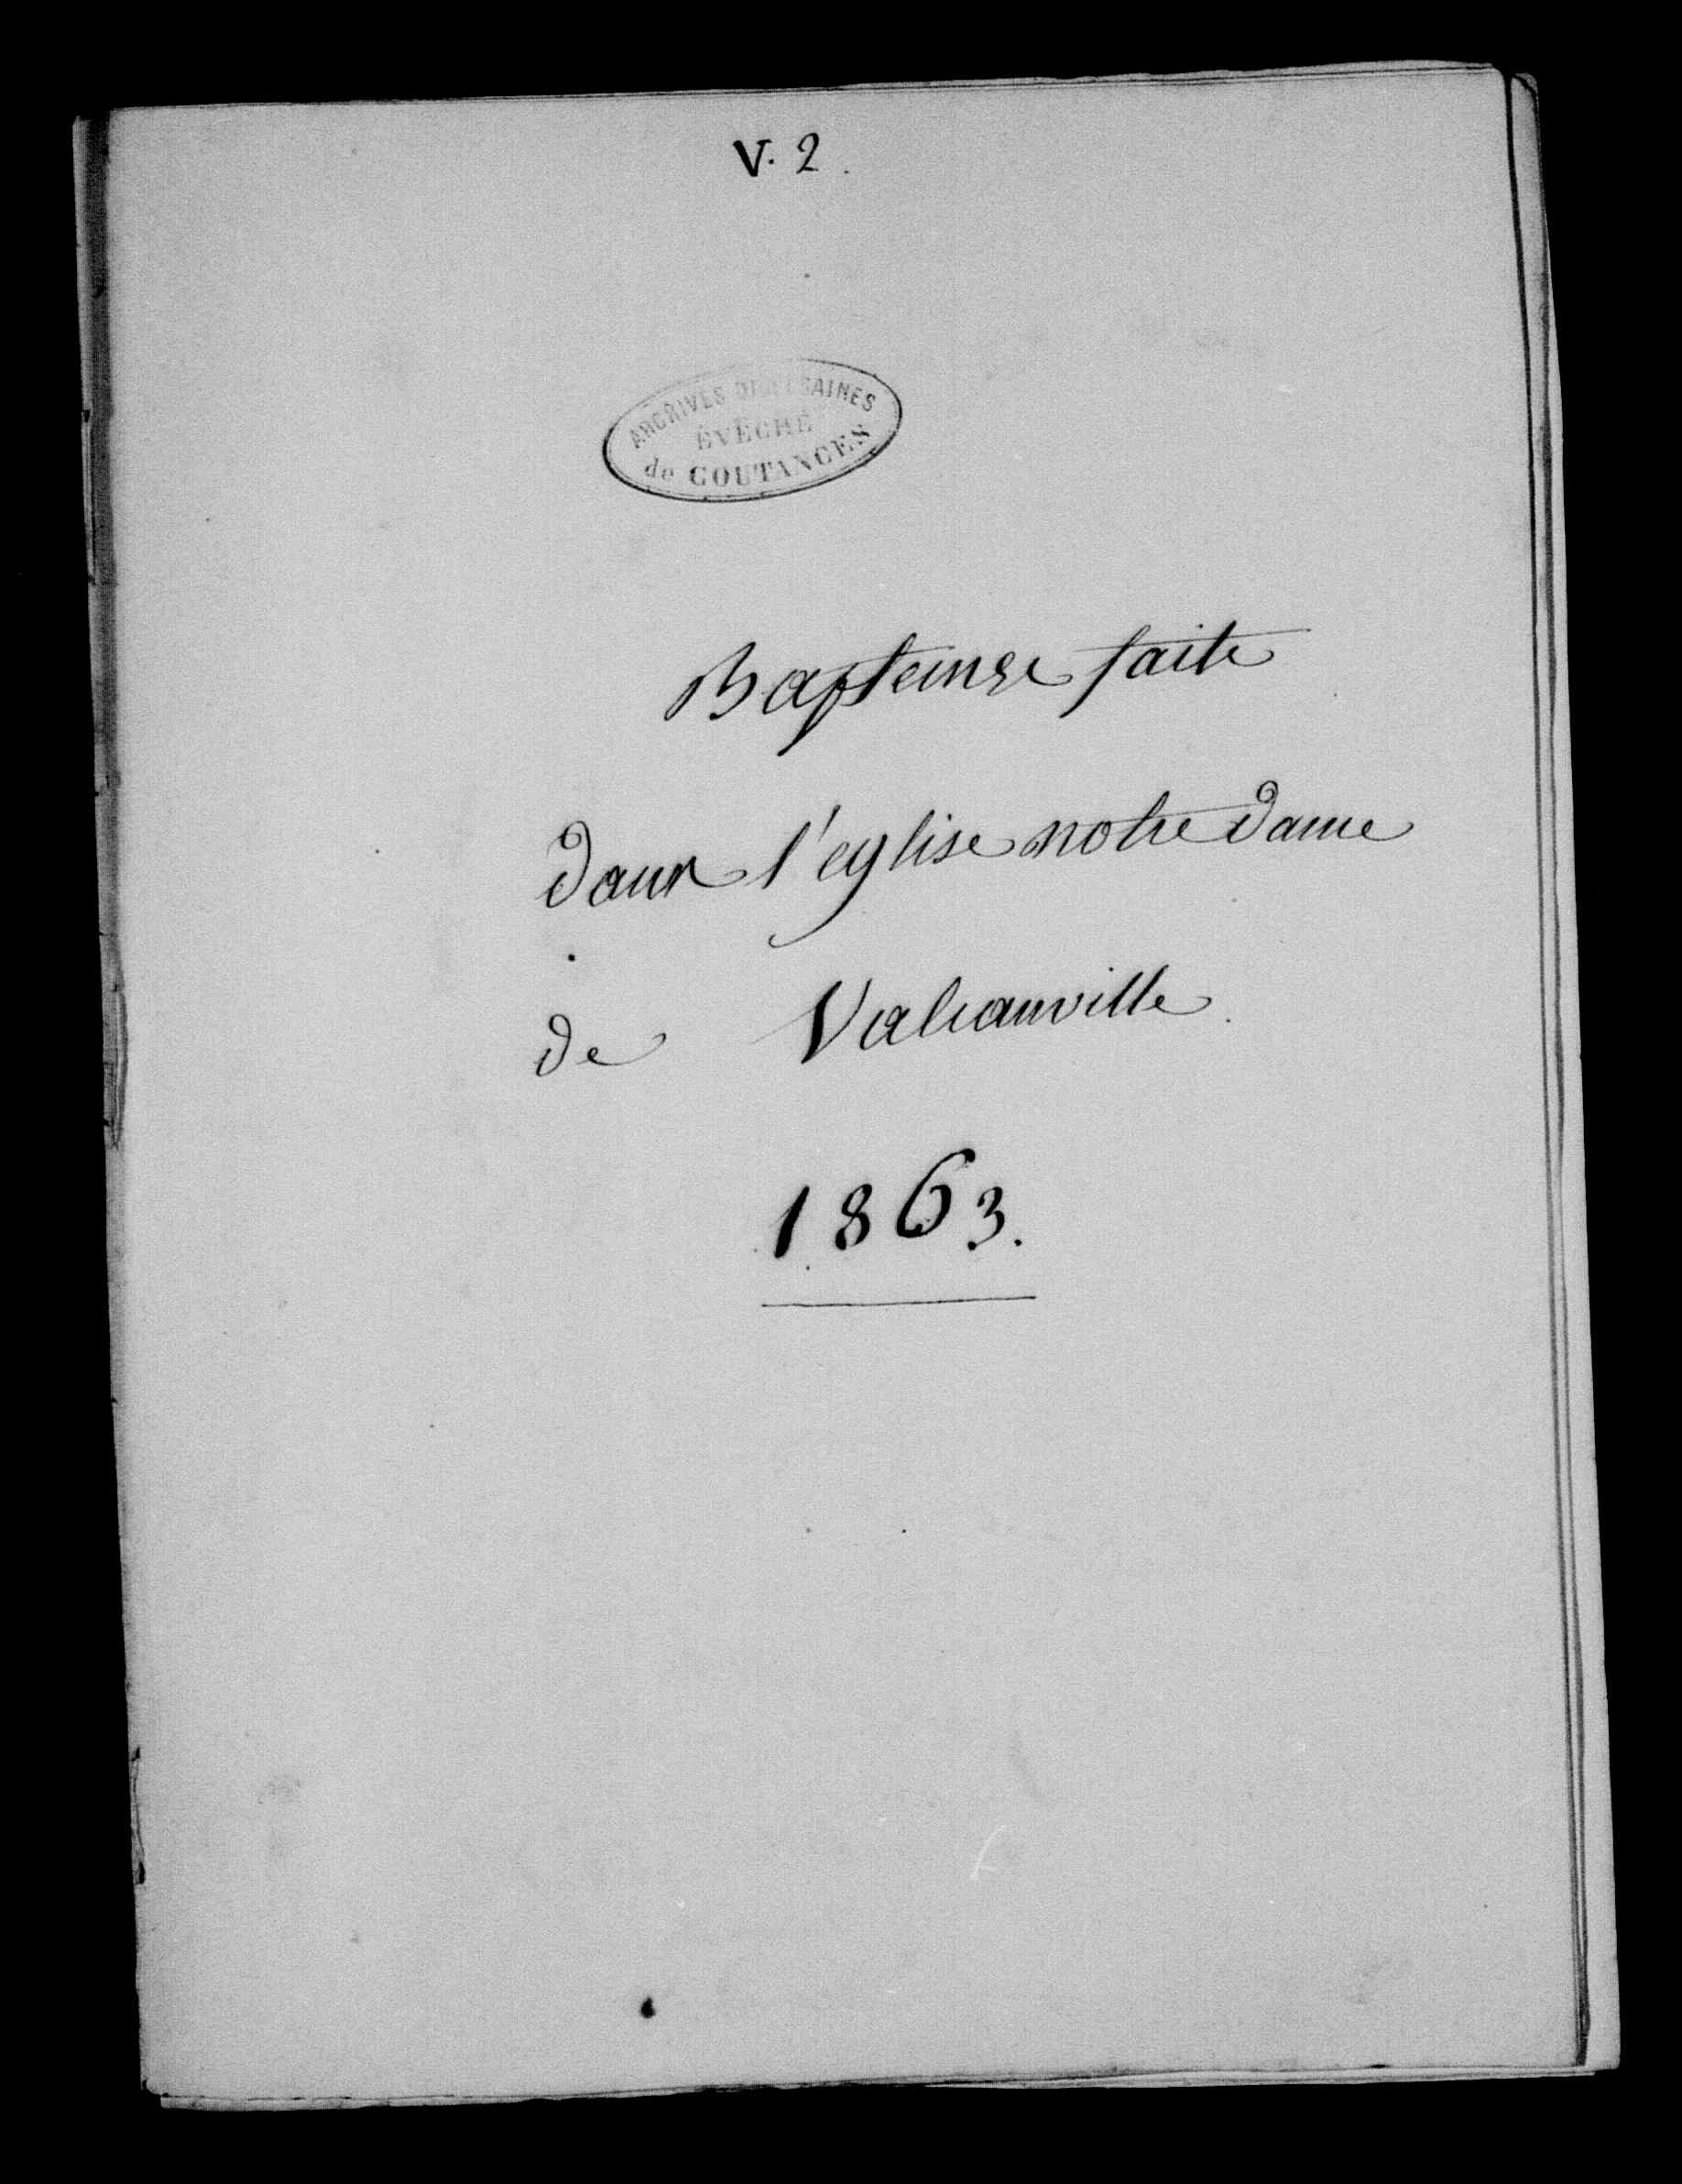 V. 2.
ARCHIVES DIOCÉSAINES
ÉVÊCHÉ
de COUTANCES
Baptemes faits
dans l'eglise notre Dame
de Valcanville
1863.